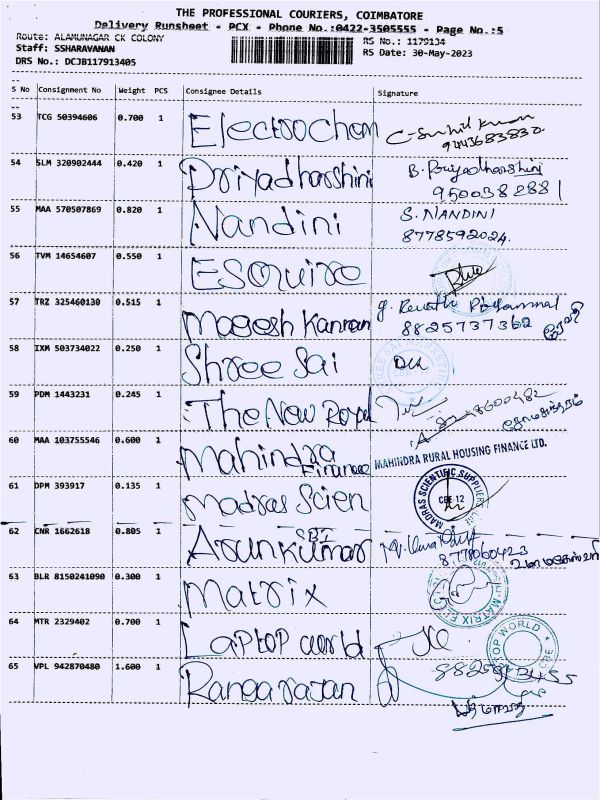 THE PROFESSIONAL COURIERS, COIMBATORE
Delivery Runsheet - PCX - Phone No.:0422-3505555 - Page No.:5
Route: ALAMUNAGAR CK COLONY
Staff: SSHARAVANAN
DRS No.: DCJB117913405
RS No.: 1179134
RS Date: 30-May-2023
S No Consignment No Weight PCS Consignee Details Signature
53 TCG 50394606 0.700 1 Electrochem C-Sunil Kumar
9443683830
54 SLM 320902444 0.420 1 Priyadharshini B. Priyadharshini
9500382881
55 MAA 570507869 0.820 1 Nandini S. NANDINI
8778592024.
56 TVM 14654607 0.550 1 Esquire
57 TRZ 325460130 0.515 1 Magesh Kannan
8825737362
58 IXM 503734022 0.250 1 Shree Sai
59 PDM 1443231 0.245 1 The New Royal
60 MAA 103755546 0.600 1 Mahindra Finance MAHINDRA RURAL HOUSING FINANCE LTD.
61 DPM 393917 0.135 1 Madras Scien MADRAS SCIENTIFIC SUPPLIERS
CBE-12
SBI
62 CNR 1662618 0.805 1 Arunkumar
8778060423
63 BLR 8150241090 0.300 1 Matrix MATRIX
64 MTR 2329402 0.700 1 Laptop world TOP WORLD
65 VPL 942870480 1.600 1 Rangarajan